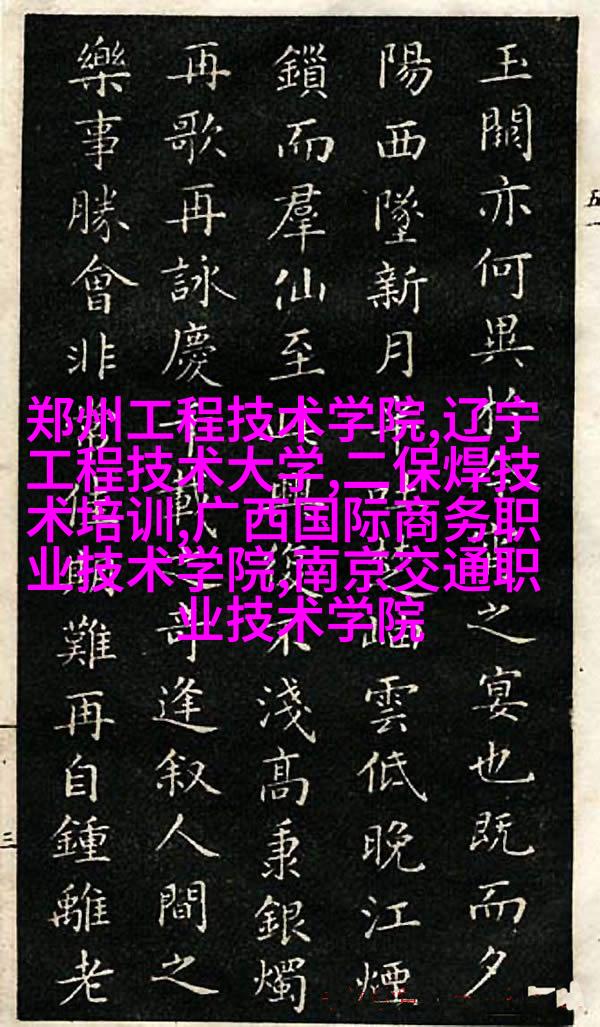 玉闕亦何異於之宴也既而夕
陽西墜新月雲低晚江煙
鎖而羣仙至興復不淺高秉銀燭
再歌再詠慶千載之奇逢叙人間之
樂事勝會非難再自鍾離老
郑州工程技术学院,辽宁
工程技术大学,二保焊技
术培训,广西国际商务职
业技术学院,南京交通职
业技术学院
五一
三